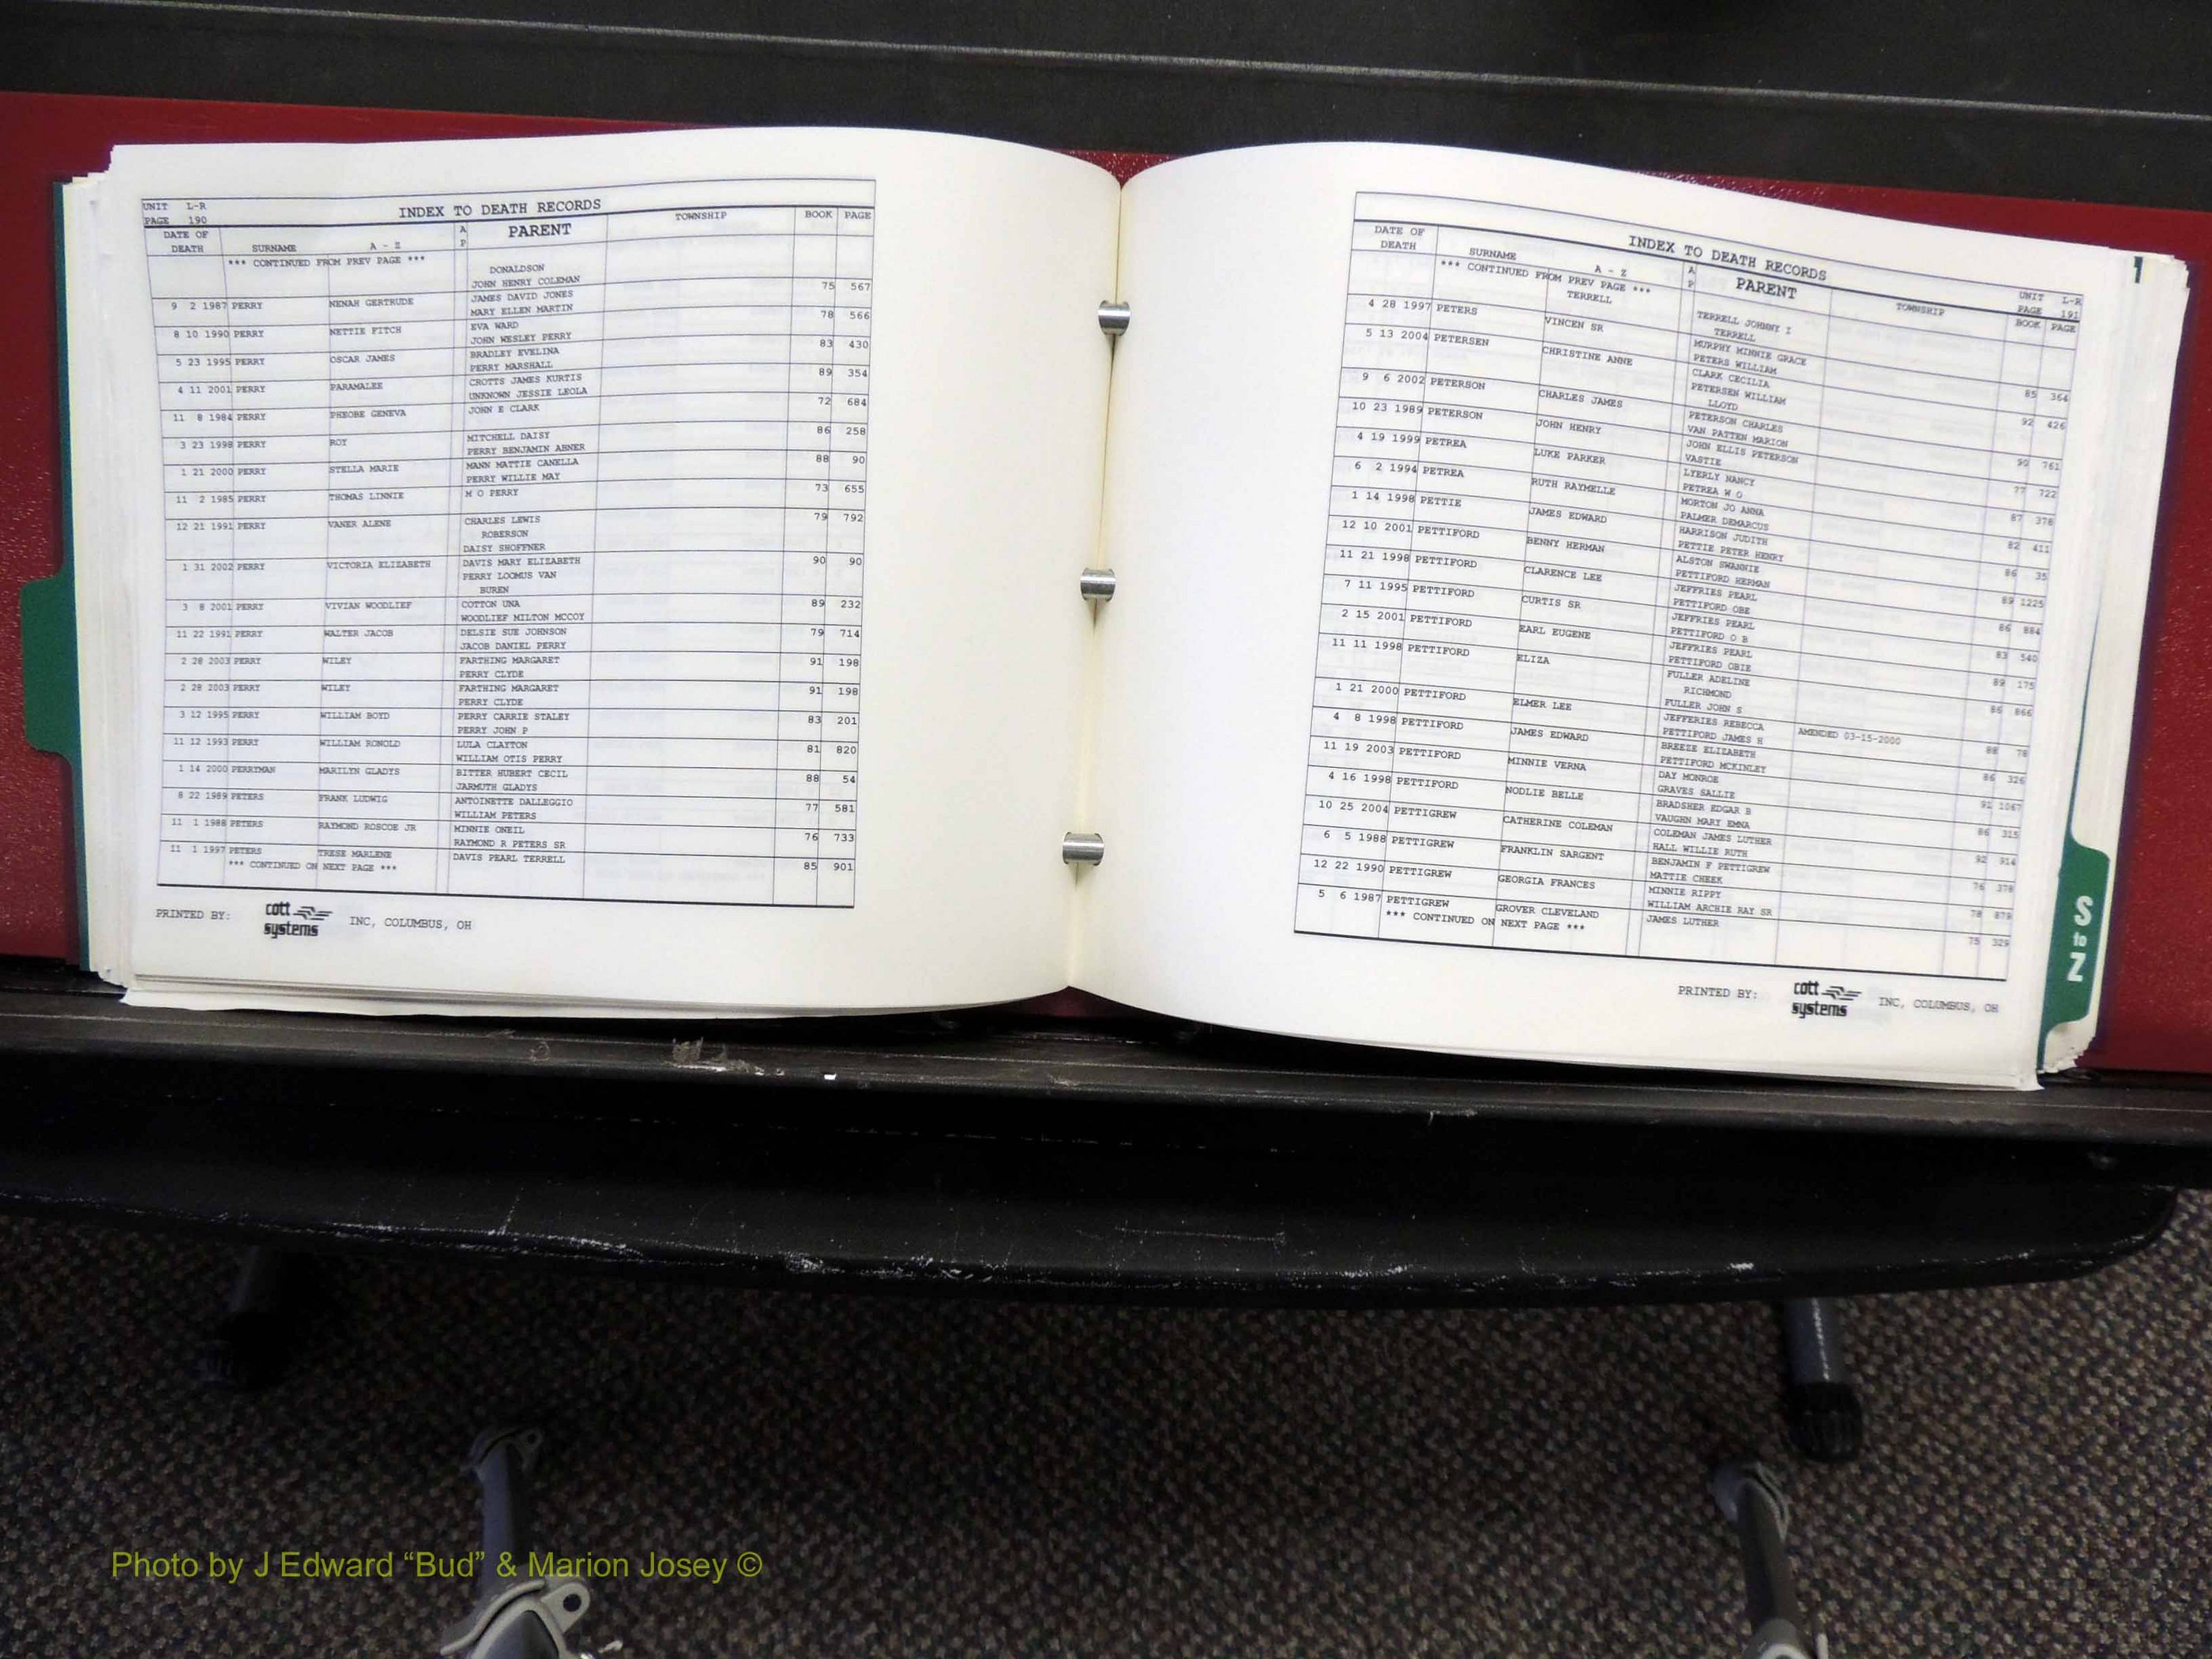 UNIT L-R
PAGE 190
INDEX TO DEATH RECORDS
DATE OF DEATH SURNAME A - Z A P PARENT TOWNSHIP BOOK PAGE
*** CONTINUED FROM PREV PAGE ***
DONALDSON
JOHN HENRY COLEMAN
9 2 1987 PERRY NENAH GERTRUDE JAMES DAVID JONES 75 567
MARY ELLEN MARTIN
8 10 1990 PERRY NETTIE FITCH EVA WARD 78 566
JOHN WESLEY PERRY
5 23 1995 PERRY OSCAR JAMES BRADLEY EVELINA 83 430
PERRY MARSHALL
4 11 2001 PERRY PARAMALEE CROTTS JAMES KURTIS 89 354
UNKNOWN JESSIE LEOLA
11 8 1984 PERRY PHEOBE GENEVA JOHN E CLARK 72 684
3 23 1998 PERRY ROY MITCHELL DAISY 86 258
PERRY BENJAMIN ABNER
1 21 2000 PERRY STELLA MARIE MANN MATTIE CANELLA 88 90
PERRY WILLIE MAY
11 2 1985 PERRY THOMAS LINNIE M O PERRY 73 655
12 21 1991 PERRY VANER ALENE CHARLES LEWIS 79 792
ROBERSON
DAISY SHOFFNER
1 31 2002 PERRY VICTORIA ELIZABETH DAVIS MARY ELIZABETH 90 90
PERRY LOOMUS VAN
BUREN
3 8 2001 PERRY VIVIAN WOODLIEF COTTON UNA 89 232
WOODLIEF MILTON MCCOY
11 22 1991 PERRY WALTER JACOB DELSIE SUE JOHNSON 79 714
JACOB DANIEL PERRY
2 28 2003 PERRY WILEY FARTHING MARGARET 91 198
PERRY CLYDE
2 28 2003 PERRY WILEY FARTHING MARGARET 91 198
PERRY CLYDE
3 12 1995 PERRY WILLIAM BOYD PERRY CARRIE STALEY 83 201
PERRY JOHN P
11 12 1993 PERRY WILLIAM RONOLD LULA CLAYTON 81 820
WILLIAM OTIS PERRY
1 14 2000 PERRYMAN MARILYN GLADYS BITTER HUBERT CECIL 88 54
JARMUTH GLADYS
8 22 1989 PETERS FRANK LUDWIG ANTOINETTE DALLEGGIO 77 581
WILLIAM PETERS
11 1 1988 PETERS RAYMOND ROSCOE JR MINNIE ONEIL 76 733
RAYMOND R PETERS SR
11 1 1997 PETERS TRESE MARLENE DAVIS PEARL TERRELL 85 901
*** CONTINUED ON NEXT PAGE ***
PRINTED BY: cott systems INC, COLUMBUS, OH
INDEX TO DEATH RECORDS
UNIT L-R
PAGE 191
DATE OF DEATH SURNAME A - Z A P PARENT TOWNSHIP BOOK PAGE
*** CONTINUED FROM PREV PAGE ***
TERRELL TERRELL JOHNNY I
TERRELL
MURPHY MINNIE GRACE
4 28 1997 PETERS VINCEN SR PETERS WILLIAM 85 364
5 13 2004 PETERSEN CHRISTINE ANNE CLARK CECILIA 92 426
PETERSEN WILLIAM
LLOYD
9 6 2002 PETERSON CHARLES JAMES PETERSON CHARLES 90 761
VAN PATTEN MARION
10 23 1989 PETERSON JOHN HENRY JOHN ELLIS PETERSON 77 722
VASTIE
4 19 1999 PETREA LUKE PARKER LYERLY NANCY 87 378
PETREA W O
6 2 1994 PETREA RUTH RAYMELLE MORTON JO ANNA 82 411
PALMER DEMARCUS
1 14 1998 PETTIE JAMES EDWARD HARRISON JUDITH 86 35
PETTIE PETER HENRY
12 10 2001 PETTIFORD BENNY HERMAN ALSTON SWANNIE 89 1225
PETTIFORD HERMAN
11 21 1998 PETTIFORD CLARENCE LEE JEFFRIES PEARL 86 884
PETTIFORD OBE
7 11 1995 PETTIFORD CURTIS SR JEFFRIES PEARL 83 540
PETTIFORD O B
2 15 2001 PETTIFORD EARL EUGENE JEFFRIES PEARL 89 175
PETTIFORD OBIE
11 11 1998 PETTIFORD ELIZA FULLER ADELINE 86 866
RICHMOND
FULLER JOHN S
1 21 2000 PETTIFORD ELMER LEE JEFFERIES REBECCA AMENDED 03-15-2000 88 78
PETTIFORD JAMES H
4 8 1998 PETTIFORD JAMES EDWARD BREEZE ELIZABETH 86 326
PETTIFORD MCKINLEY
11 19 2003 PETTIFORD MINNIE VERNA DAY MONROE 91 1067
GRAVES SALLIE
4 16 1998 PETTIFORD NODLIE BELLE BRADSHER EDGAR B 86 315
VAUGHN MARY EMMA
10 25 2004 PETTIGREW CATHERINE COLEMAN COLEMAN JAMES LUTHER 92 914
HALL WILLIE RUTH
6 5 1988 PETTIGREW FRANKLIN SARGENT BENJAMIN F PETTIGREW 76 378
MATTIE CHEEK
12 22 1990 PETTIGREW GEORGIA FRANCES MINNIE RIPPY 78 879
WILLIAM ARCHIE RAY SR
5 6 1987 PETTIGREW GROVER CLEVELAND JAMES LUTHER 75 329
*** CONTINUED ON NEXT PAGE ***
PRINTED BY: cott systems INC, COLUMBUS, OH
S to Z
Photo by J Edward “Bud” & Marion Josey ©